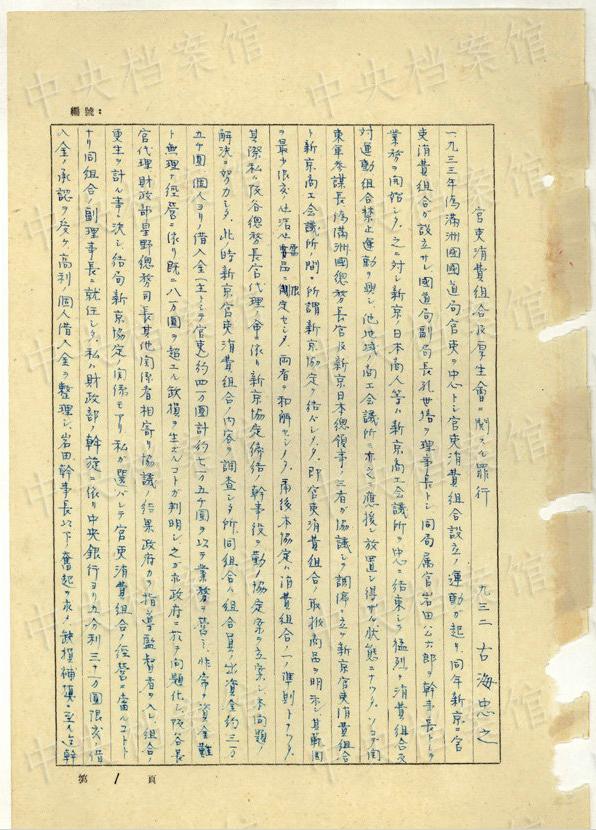 編號：
官吏消費組合及厚生會ニ関スル罪行
九三二 古海忠之
一九三三年偽滿洲國國道局官吏ヲ中心トシ官吏消費組合設立ノ運動ガ起リ、同年新京ニ官
吏消費組合ガ設立サレ國道局副局長孔世培ヲ理事長トシ同局属官岩田公六郎ヲ幹事長トシテ
業務ヲ開始シタ。之ニ対シ新京ノ日本商人等ハ新京商工会議所ヲ中心ニ結束シテ猛烈ナ消費組合反
対運動組合禁止運動ヲ興シ他地域ノ商工会議所ニ亦之ニ應援シ放置シ得ザル状態ニナッタ。ソコデ関
東軍参謀長偽満洲國總務長官及新京日本總領事ノ三者ガ協議シテ調停ニ立チ新京官吏消費組合
ト新京商工会議所ノ間ニ所謂新京協定ヲ結バシメタ。即官吏消費組合ノ取扱商品ヲ明示シ其範囲
ヲ最少限度ノ生活必需品ニ限定セシメ、両者ヲ和解セシメタ。爾後本協定ハ消費組合ノ一ノ準則トナッタ。
其際私ハ阪谷總務長官代理ノ命ニ依リ新京協定締結ノ幹事役ヲ勤メ協定案ヲ立案シ本問題ノ
解決ニ努力シタ。此ノ時新京官吏消費組合ノ内容ヲ調査シタ所、同組合ハ組合員ノ出資金約三万
五千圓個人ヨリノ借入金(主トシテ官吏)約四万圓計約七万五千圓ヲ以テ業務ヲ営ミ、非常ナ資金難
ト無理ナ経営ニ依リ既ニ八万圓ヲ超エル缺損ヲ生ズルコトガ判明シ之ガ亦政府ニ於テ問題化シ阪谷長
官代理財政部星野總務司長其他関係者相寄リ協議ノ結果政府カラ指導監督者ヲ入レ組合ノ
更生ヲ計ル事ニ決シ結局新京協定ノ関係モアリ私ガ選バレテ官吏消費組合ノ経営ニ當ルコトト
ナリ同組合ノ副理事長ニ就任シタ。私ハ財政部ノ幹旋ニ依リ中央銀行ヨリ九分利三十万圓限度ノ借
入金ノ承認ヲ受ケ高利ノ個人借入金ヲ整理シ、岩田幹事長以下ノ奮起ヲ求メ缺損補填ニ至ル迄幹
第 1 頁
中央档案馆